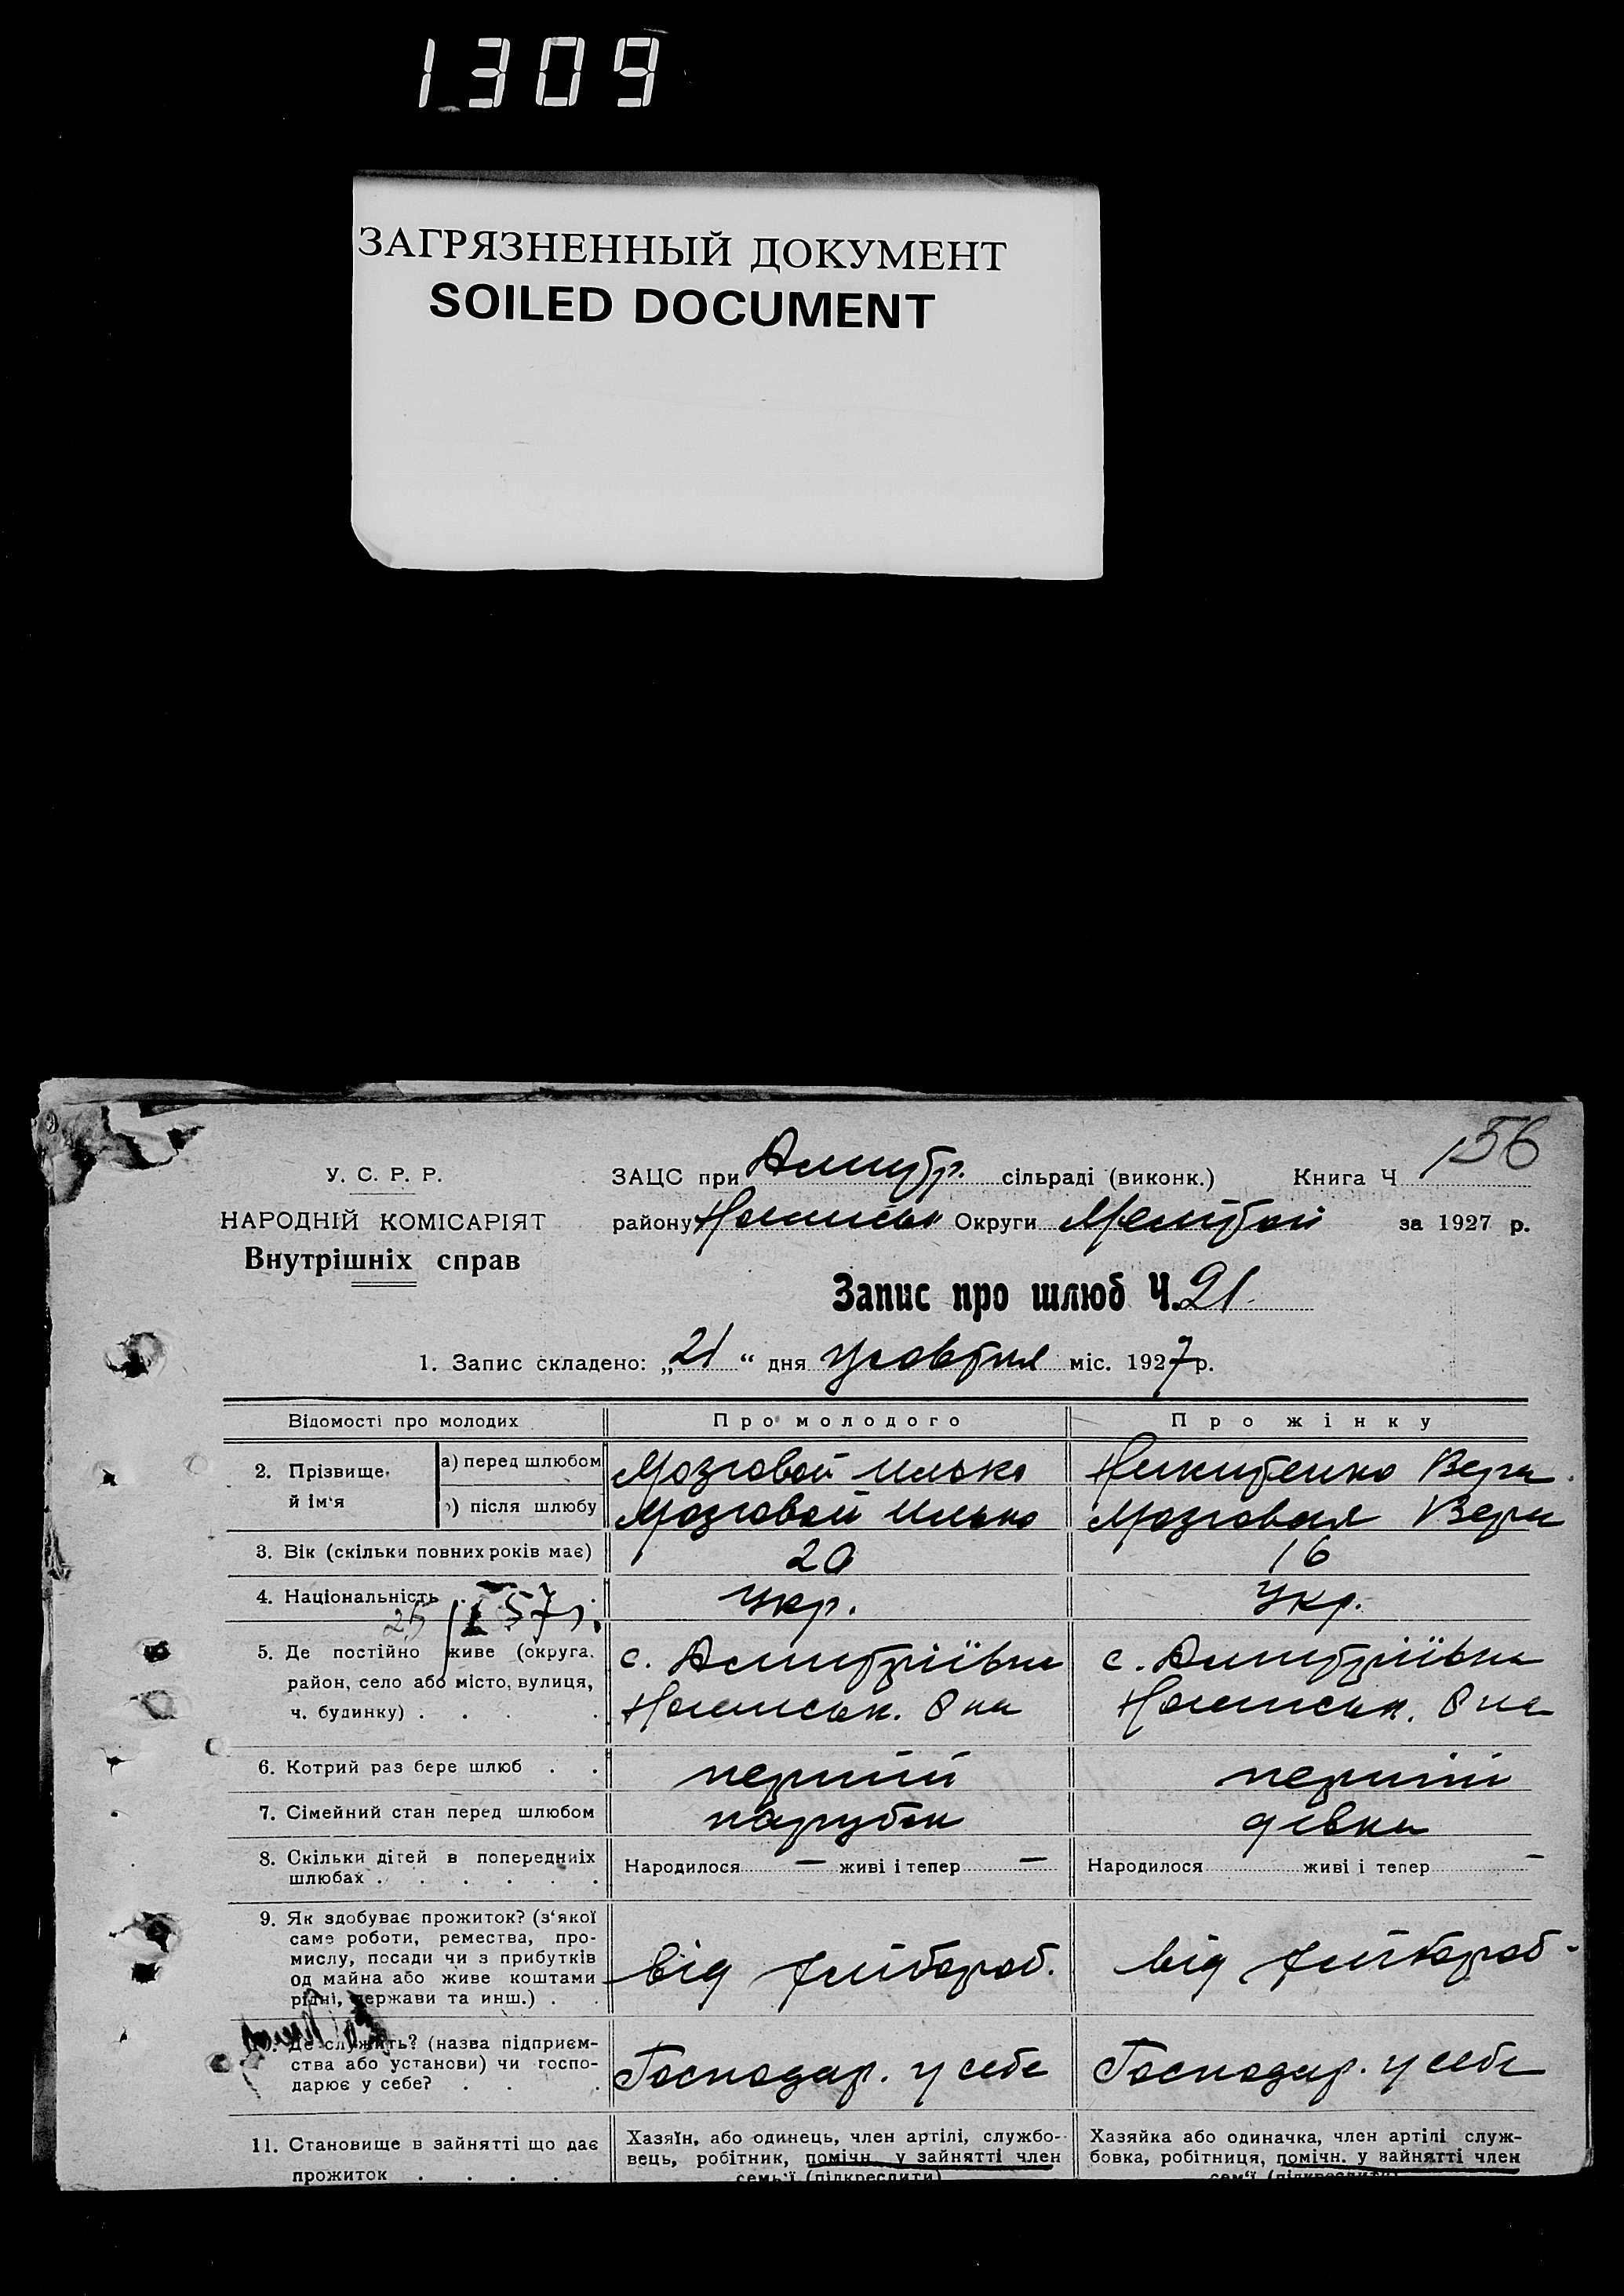 1309
ЗАГРЯЗНЕННЫЙ ДОКУМЕНТ
SOILED DOCUMENT
156
У. С. Р. Р.
НАРОДНІЙ КОМІСАРІЯТ
Внутрішніх справ
ЗАЦС при Дмитр. сільраді (виконк.) Книга Ч
району Округи за 1927 р.
Запис про шлюб Ч. 21
1. Запис складено: „21“ дня жовтня міс. 1927 р.
Відомості про молодих
Про молодого
Про жінку
2. Прізвище й ім'я
а) перед шлюбом
Мозговой Илько
Никитенко Вера
б) після шлюбу
Мозговой Илько
Мозговая Вера
3. Вік (скільки повних років має)
20
16
4. Національність
Укр.
Укр.
25 I 57 г.
5. Де постійно живе (округа.
район, село або місто, вулиця,
ч. будинку) . . . .
с. Дмитріївка
с. Дмитріївка
6. Котрий раз бере шлюб . .
перший
перший
7. Сімейний стан перед шлюбом
парубок
дівка
8. Скільки дітей в попередніх
шлюбах . . . . . .
Народилося — живі і тепер —
Народилося живі і тепер —
9. Як здобуває прожиток? (з'якої
саме роботи, ремества, про-
мислу, посади чи з прибутків
од майна або живе коштами
рідні, держави та инш.) . .
від хлібороб.
від хлібороб.
10. Де служить? (назва підприєм-
ства або установи) чи госпо-
дарює у себе? . . .
Господар. у себе
Господар. у себе
11. Становище в зайнятті що дає
прожиток . . . .
Хазяїн, або одинець, член артілі, службо-
вець, робітник, помічн. у зайнятті член
семь'ї (підкреслити)
Хазяйка або одиначка, член артілі служ-
бовка, робітниця, помічн. у зайнятті член
сем'ї (підкреслити)